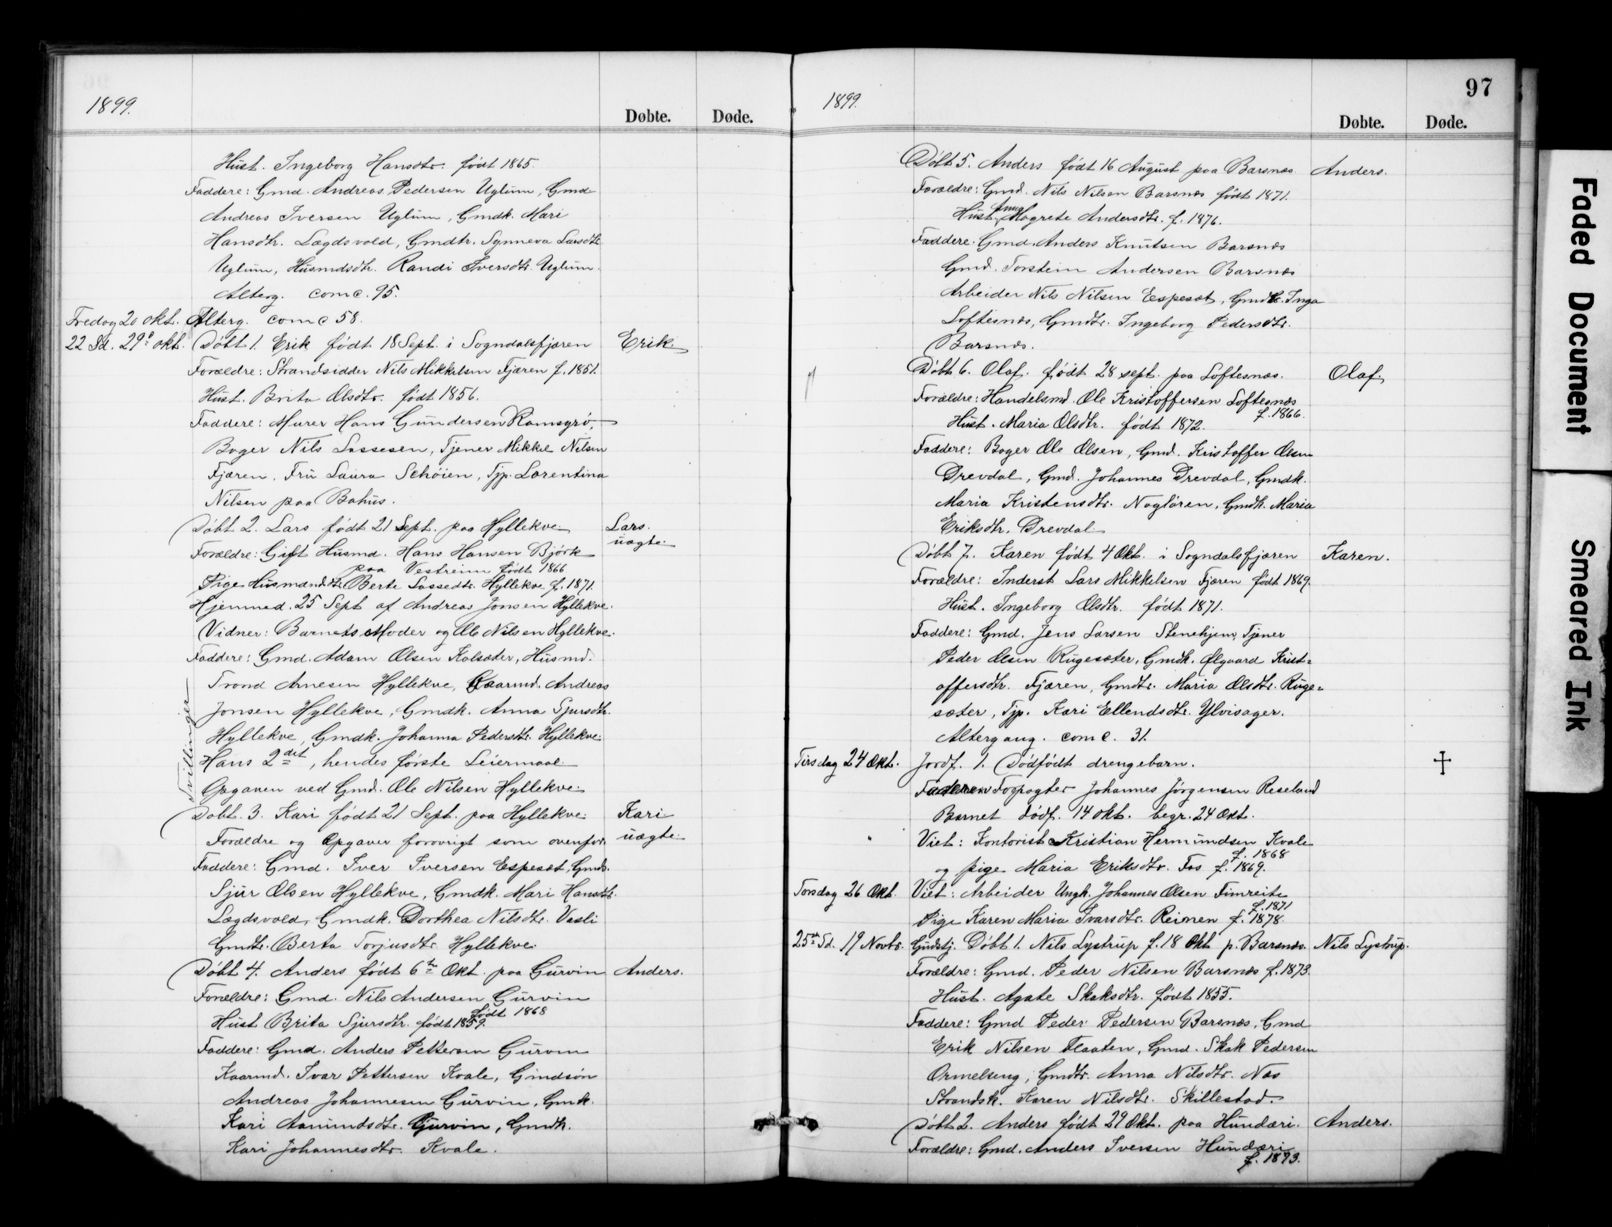 1899.
Døbte. Døde.
Hust. Ingeborg Hansdtr. født 1865
Faddere: Gmd. Andreas Pedersen Uglum, Gmd
Andreas Iversen Uglum, Gmdk. Mari
Hansdtr. Lægdsvold, Gmdtr. Synneva Larsdtr
Uglum, Husmdsdtr. Randi Iversdtr. Uglum.
Alterg. comc. 95.
Fredag 20 okt. Alterg. comc 58.
22 Sd. 29de okt. Døbt 1. Erik født 18 Sept. i Sogndalsfjæren Erik
Forældre: Strandsidder Nils Mikkelsen Fjæren f. 1851.
Hust. Brita Olsdtr. født 1856.
Faddere: Murer Hans Gundersen Ramsgrø,
Bager Nils Lassesen, Tjener Mikkel Nilsen
Fjæren, Fru Laura Schøien, Tjp. Lorentina
Nilsen paa Bahus.
Døbt 2. Lars født 21 Sept. paa Hyllekve Lars.
uægte
Forældre: Gift Husmd. Hans Hansen Bjørk
paa Vestreim født 1866
Pige Husmandsdtr. Berte Lassedtr. Hyllekve f. 1871.
Hjemmed. 25 Sept af Andreas Jonsen Hyllekve.
Vidner: Barnets Moder og Ole Nilsen Hyllekve.
Faddere: Gmd. Adam Olsen Kolsæter, Husmd.
Trond Arnesen Hyllekve, Kaarmd. Andreas
Jonsen Hyllekve, Gmdk. Anna Sjursdtr.
Hyllekve, Gmdk. Johanna Pedersdtr. Hyllekve.
Hans 2det, hendes første Leiermaal
Opgaven ved Gmd. Ole Nilsen Hyllekve.
Tvillinger
Døbt. 3. Kari født 21 Sept. paa Hyllekve. Kari
uægte
Forældre og Opgaver forøvrigt som ovenfor.
Faddere: Gmd. Iver Iversen Espeset, Gmds.
Sjur Olsen Hyllekve, Gmdk. Mari Hansdtr.
Lægdsvold, Gmdk. Dorthea Nilsdtr. Vasli
Gmdtr. Berta Torjusdtr. Hyllekve
Døbt 4. Anders født 6te Okt. paa Gurvin Anders.
Forældre: Gmd. Nils Andersen Gurvin
født 1868
Hust Brita Sjursdtr. født 1859.
Faddere: Gmd. Anders Pettersen Gurvin
Kaarmd. Ivar Pettersen Kvale, Gmdsøn
Andreas Johannesen Gurvin, Gmdk.
Kari Aamundsdtr. Gurvin, Gmdtr.
Kari Johannesdtr. Kvale.
1899.
97
Døbte. Døde.
Døbt 5. Anders født 16 August paa Barsnes Anders.
Forældre: Gmd. Nils Nilsen Barsnes født 1871.
Hust. Anna Magrete Andersdtr. f. 1876.
Faddere. Gmd. Anders Knutsen Barsnes
Gmd. Torstein Andersen Barsnes
Arbeider Nils Nilsen Espeset, Gmdtr. Inga
Loftesnes, Gmdtr. Ingeborg Pedersdtr.
Barsnes.
Døbt 6. Olaf. født 28 sept. paa Loftesnes. Olaf.
Forældre: Handelsmd. Ole Kristoffersen Loftesnes
f. 1866.
Hust. Maria Olsdtr. født 1872.
Faddere: Bager Ole Olsen, Gmd. Kristoffer Olsen
Drevdal, Gmd. Johannes Drevdal, Gmdk.
Maria Kristensdtr. Nagløren, Gmdtr. Maria
Eriksdtr. Drevdal
Døbt 7. Karen født 4 Okt. i Sogndalsfjæren Karen.
Forældre: Inderst Lars Mikkelsen Fjæren født 1869.
Hust. Ingeborg Olsdtr. født 1871.
Faddere: Gmd. Jens Larsen Stenehjem, Tjener
Peder Olsen Rugesæter, Gmdk. Ølgaard Krist=
offersdtr. Fjæren, Gmdtr. Maria Olsdtr. Ruge=
sæter, Tjp. Kari Ellendsdtr. Ylvisager.
Altergang. comc. 31.
Tirsdag 24 Okt. Jordf. 1. Dødfødt drengebarn.
Faderen Johannes Jørgensen Reseland
Barnet dødf. 14 okt. begr. 24 Okt.
" Viet: Kontorist Kristian Hermundsen Kvale
f. 1868
og pige Maria Eriksdtr. Fos f. 1869.
Torsdag 26 Okt Viet: Arbeider Ungk. Johannes Olsen Fimreite
f. 1871
Pige Karen Maria Ivarsdtr. Reinen f. 1878.
25de Sd. 19 Novbr. Gudstj. Døbt 1. Nils Lystrup f. 18 Okt p. Barsnes. Nils Lystrup.
Forældre: Gmd. Peder Nilsen Barsnes f. 1873.
Hust. Agate Skaksdtr. født 1855.
Faddere: Gmd Peder Pedersen Barsnes, Gmd
Erik Nilsen Flaaten, Gmd. Skak Pedersen
Ormelseng, Gmdtr. Anna Nilsdtr. Næs
Strandsk. Karen Nilsdtr. Skillestad.
Døbt 2. Anders født 29 Okt. paa Hundæri. Anders.
Forældre: Gmd. Anders Iversen Hundæri
f. 1873.
Faded Document
Smeared Ink